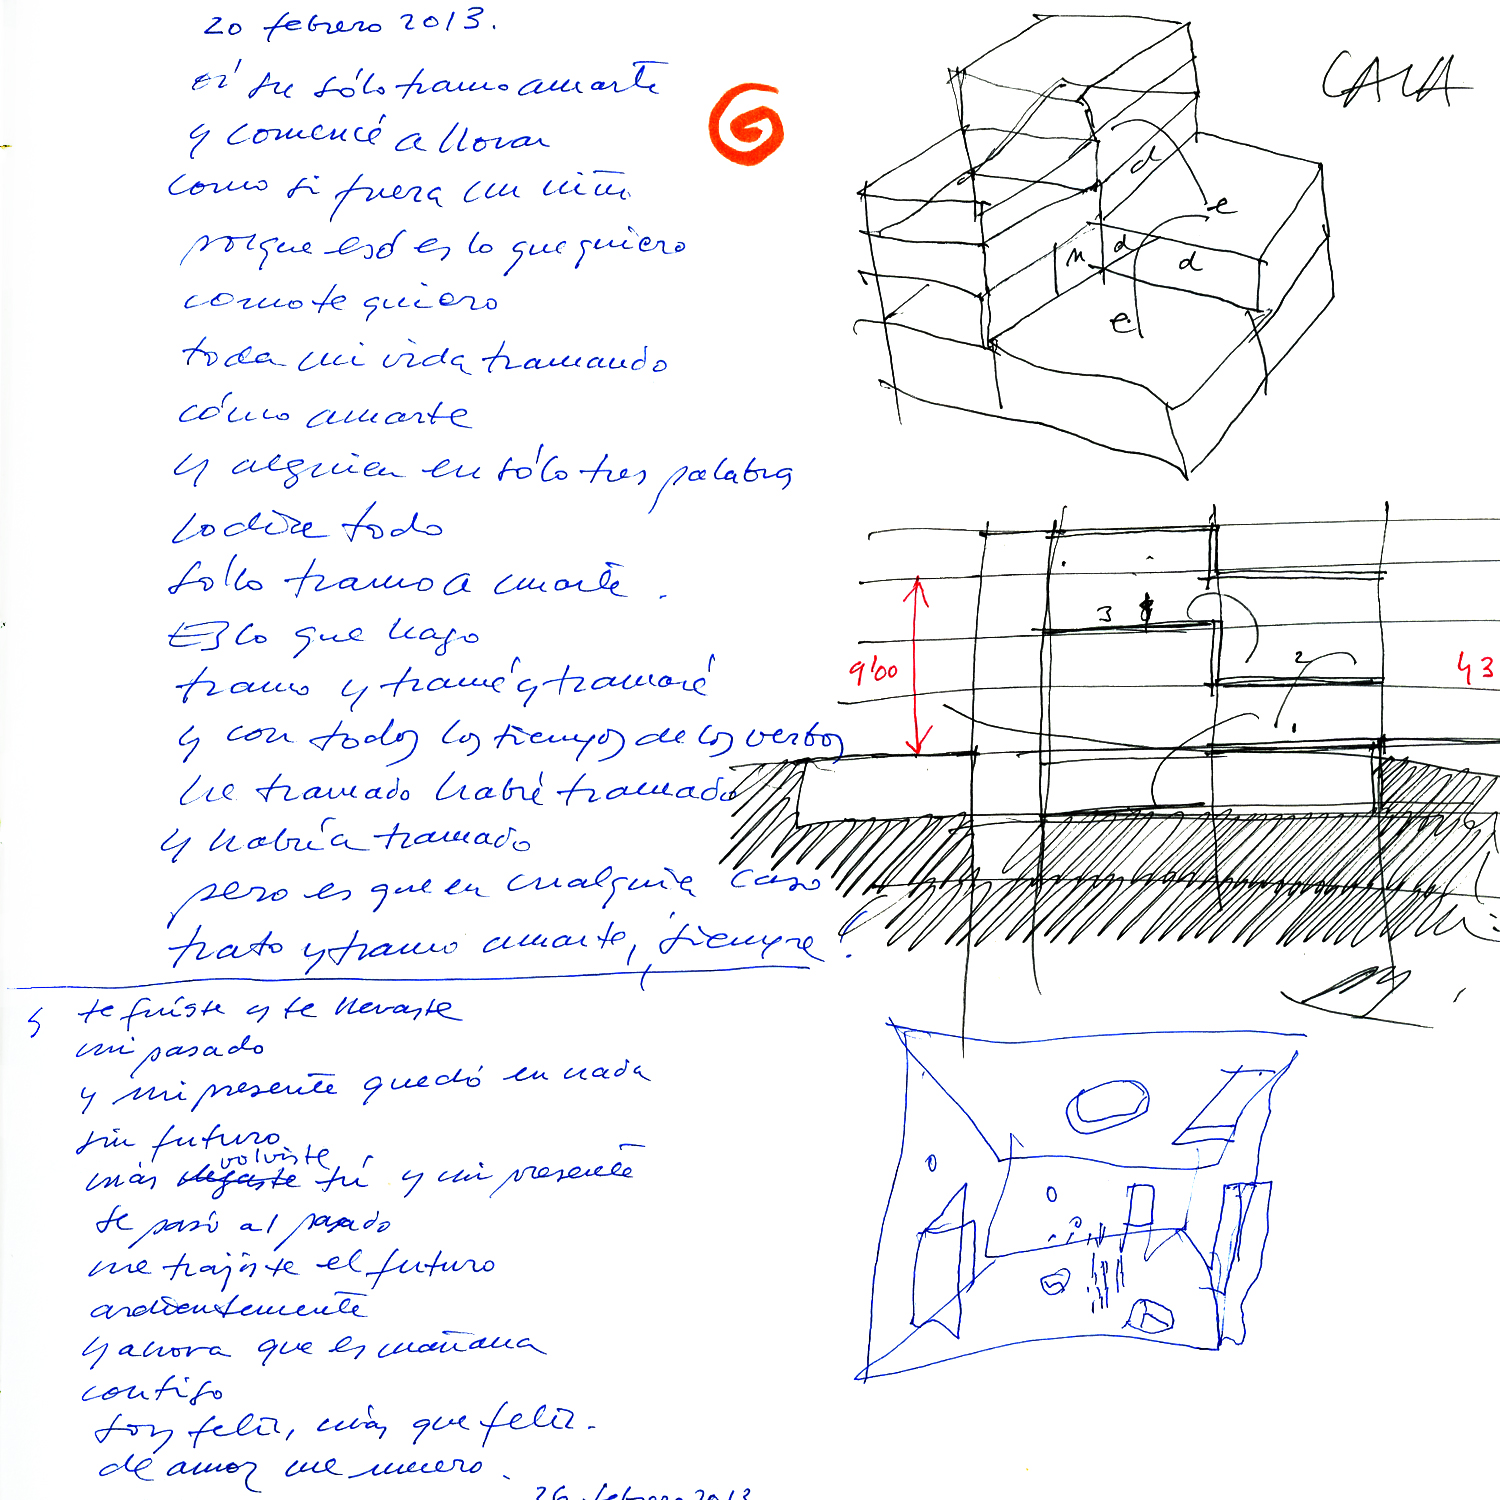 20 febrero 2013.
oí tu sólo tramo amarte
y comencé a llorar
como si fuera un niño
porque eso es lo que quiero
como te quiero
toda mi vida tramando
cómo amarte
y alguien en sólo tres palabras
lo dice todo
sólo tramo amarte.
Es lo que hago
tramo y tramé y tramaré
y con todos los tiempos de los verbos
he tramado habré tramado
y habría tramado
pero es que en cualquier caso
trato y tramo amarte, siempre!
te fuiste y te llevaste
mi pasado
y mi presente quedó en nada
sin futuro
más llegaste volviste tú y mi presente
se pasó al pasado
me trajiste el futuro
ardientemente
y ahora que es mañana
contigo
soy feliz, más que feliz.
de amor me muero.
26 febrero 2013
G
CALA
d
e
n d d
e
3
9'00
2
43
1